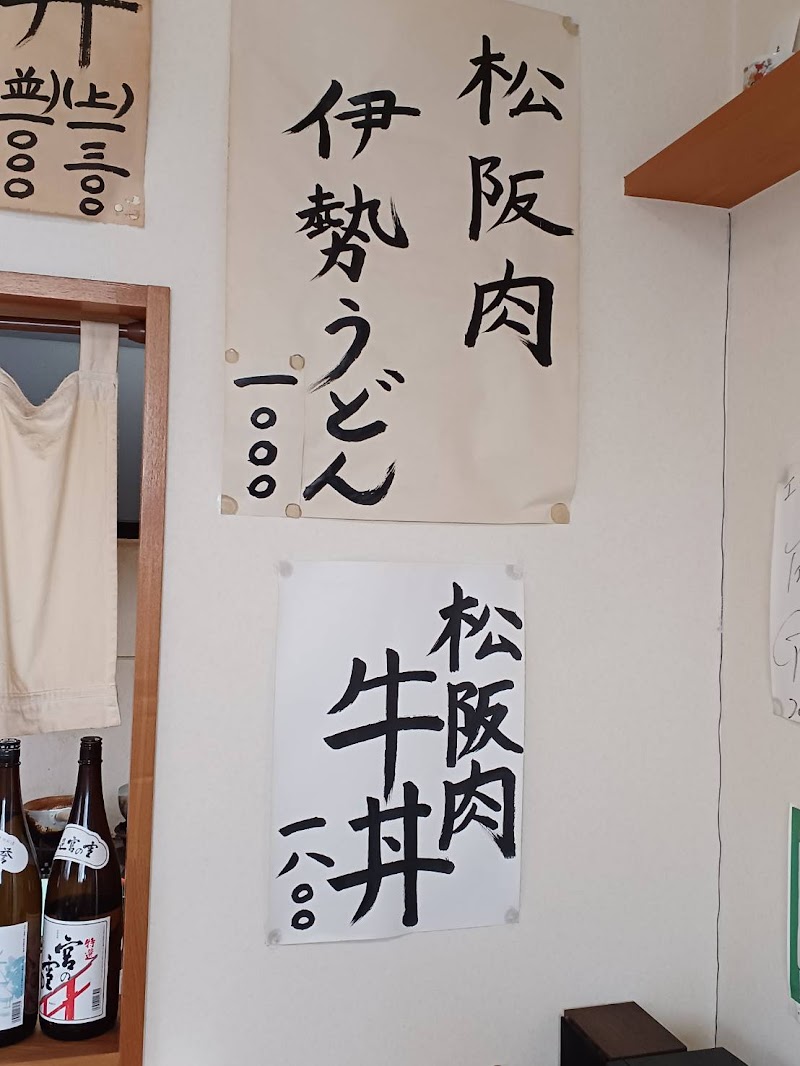 松阪肉
伊勢うどん
一〇〇〇
松阪肉
牛丼
一八〇〇
丼
(上)一三〇〇
並)一〇〇〇
宮の雪
特選
宮の雪